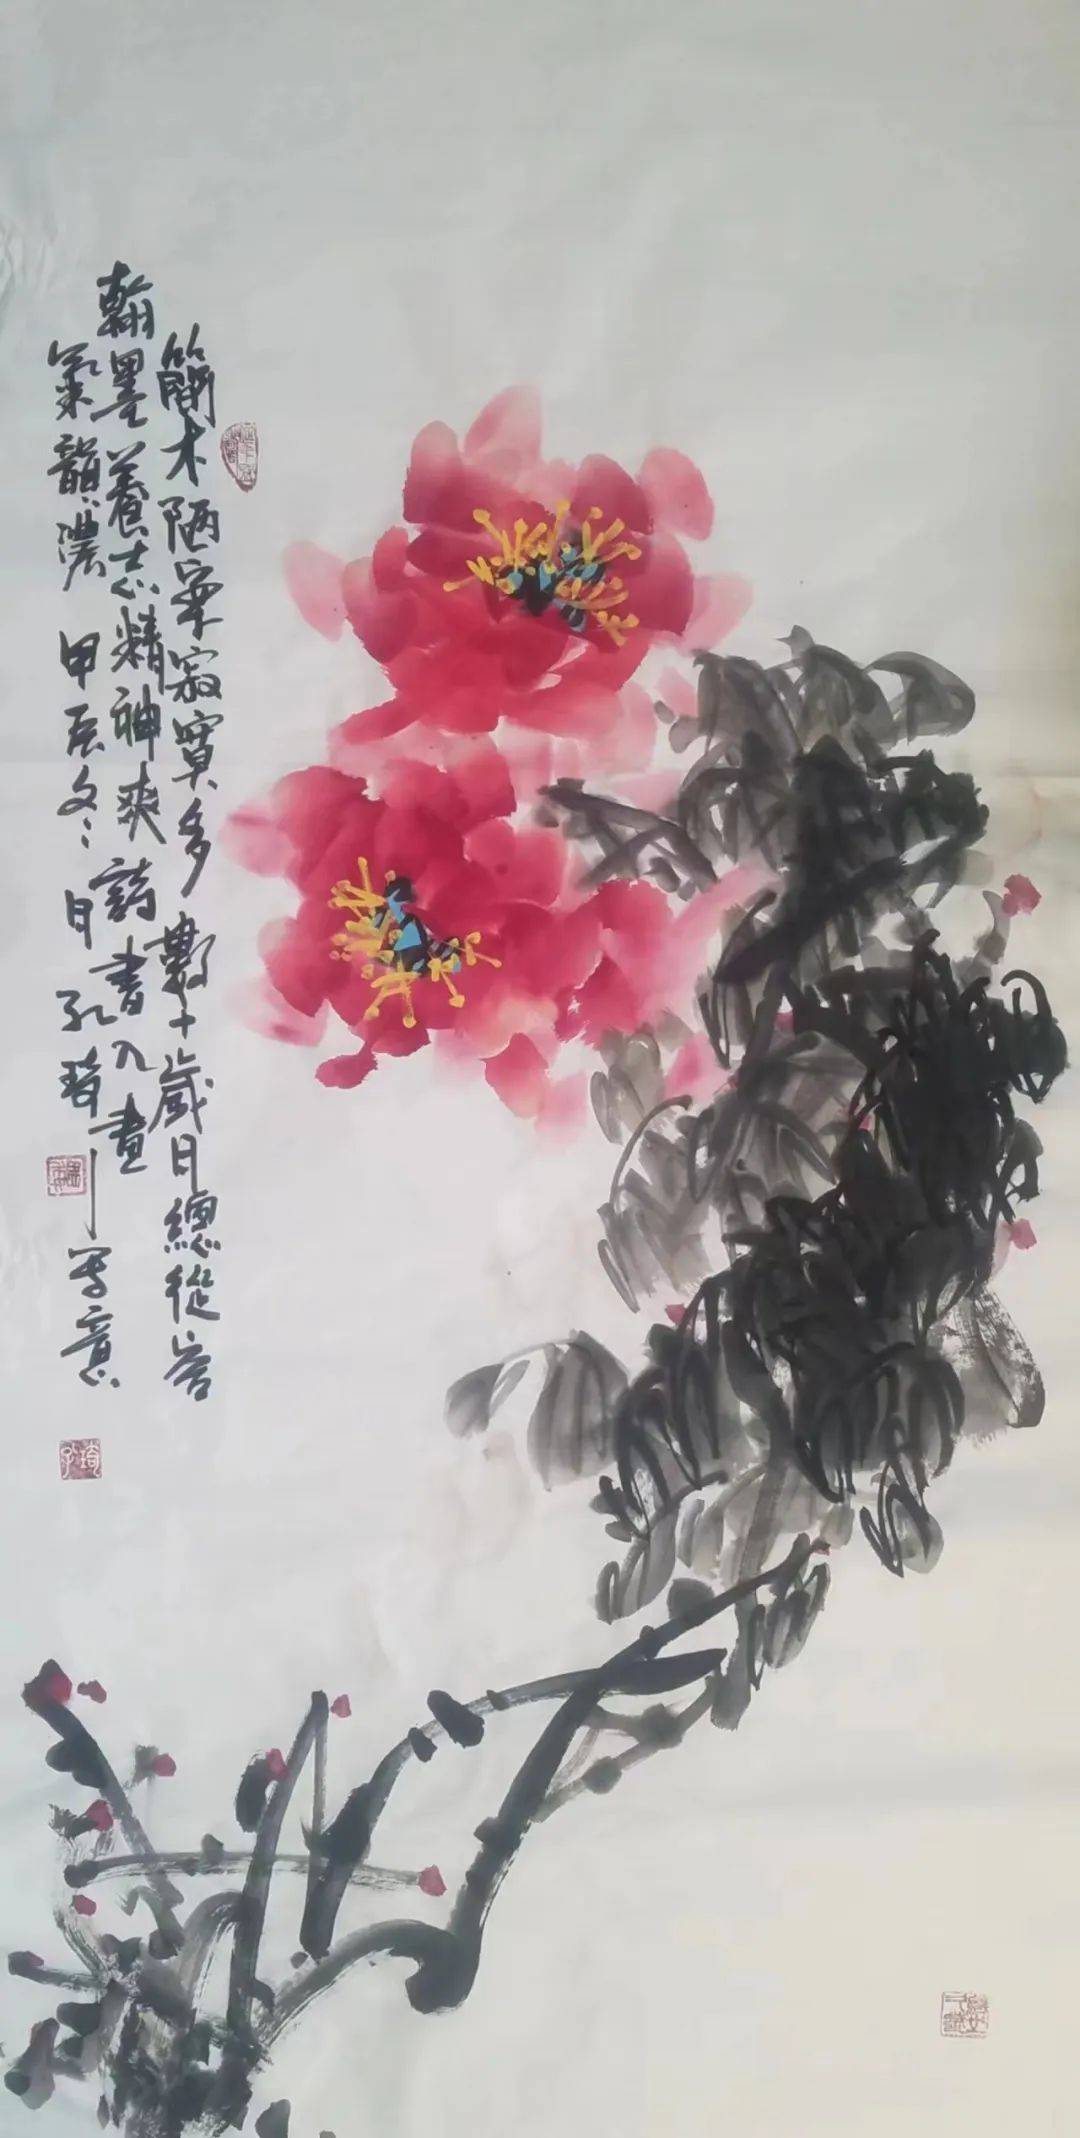 簡木陋室寂寞多數十歲月總從容
翰墨養志精神爽詩書入畫
氣韻濃 甲辰冬日孔琦写意
孔琦